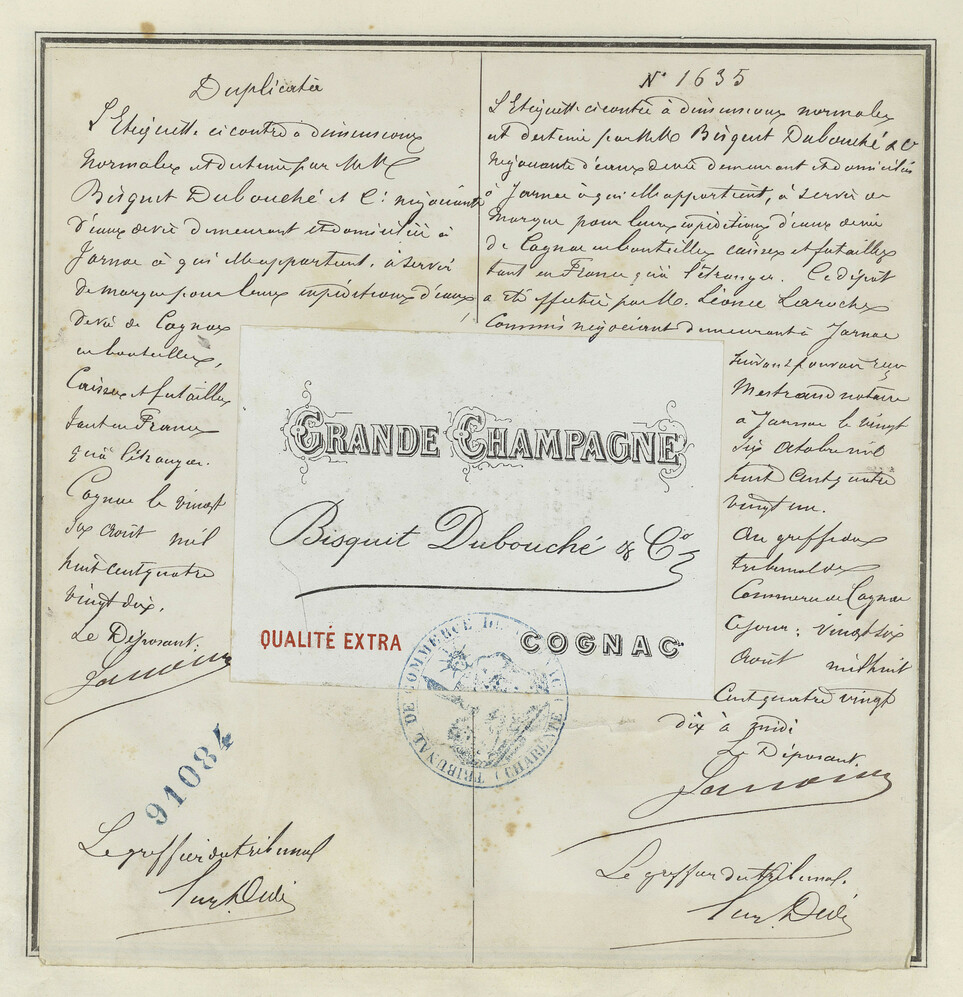 Duplicata
L'Etiquette ci contre à dimensions
normales est destinée par MM
Bisquit Dubouché et Cie négociants
d'eaux de vie demeurant et domiciliés à
Jarnac à qui elle appartient, à servir
de marque pour leurs expéditions d'eaux
de vie de Cognac
en bouteilles,
Caisses et futailles
tant en France
qu'à l'étranger.
Cognac le vingt
six Août mil
huit cent quatre
vingt dix.
Le Déposant.
91084
Le greffier du tribunal
N° 1635
L'Etiquette ci contre à dimensions normales
est destinée par MM Bisquit Dubouché & Co
négociants d'eaux de vie demeurant et domiciliés
à Jarnac à qui elle appartient, à servir de
marque pour leurs expéditions d'eaux de vie
de Cognac en bouteilles caisses et futailles
tant en France qu'à l'étranger. Ce dépôt
a été effectué par M. Léonce Laroche
Commis négociant demeurant à Jarnac
suivant pouvoir reçu
Mestraud notaire
à Jarnac le vingt
six octobre mil
huit cent quatre
vingt un.
Au greffe du
tribunal de
Commerce de Cognac
Ce jour: vingt six
Août mil huit
Cent quatre vingt
dix à midi
Le Déposant.
Le greffier du tribunal.
GRANDE CHAMPAGNE
Bisquit Dubouché & Co
QUALITÉ EXTRA COGNAC
TRIBUNAL DE COMMERCE DE COGNAC (CHARENTE)